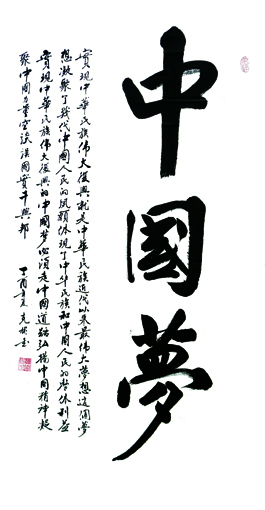 中國夢
實現中華民族偉大復興就是中華民族近代以來最偉大夢想這個夢
想凝聚了幾代中國人民的夙願体現了中华民族和中國人民的整体利益
實現中華民族偉大復興的中國夢必須走中國道路弘揚中國精神凝
聚中國力量空談误國實干興邦
丁酉夏